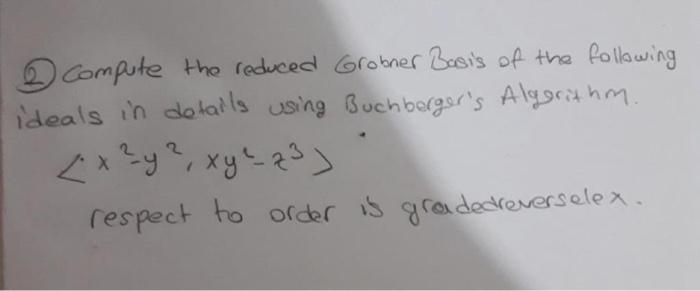 ② Compute the reduced Grobner Basis of the following
ideals in details using Buchberger's Algorithm.
< x²-y², xy²-z³ >
respect to order is gradedreverselex.